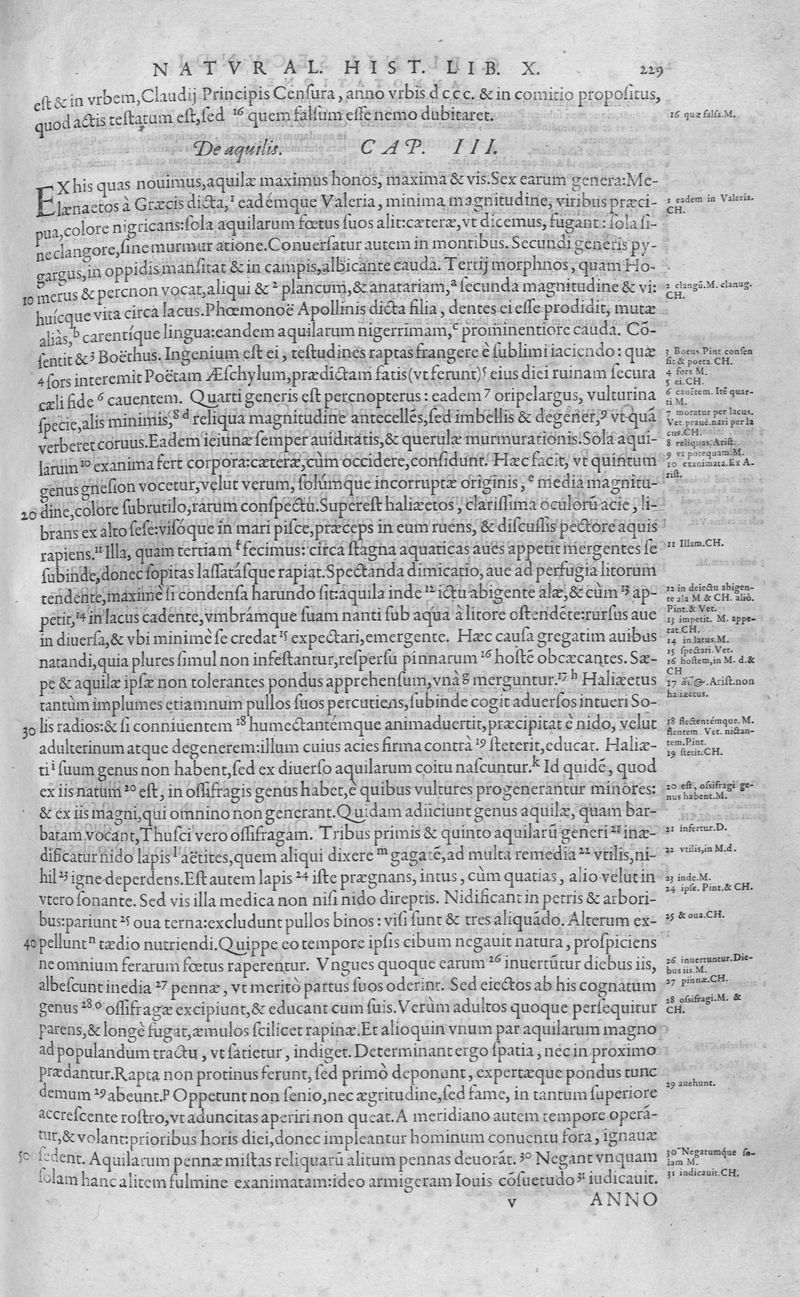 NATVRAL. HIST. LIB. X. 229
est & in vrbem, Claudij Principis Censura, anno vrbis dccc. & in comitio propositus,
quod actis testatum est, sed ¹⁶ quem falsum esse nemo dubitaret.
16 quæ falsa.M.
De aquilis. CAP. III.
EX his quas nouimus, aquilæ maximus honos, maxima & vis. Sex earum genera: Me-
lænaetos à Græcis dicta,¹ eadémque Valeria, minima magnitudine, viribus præci-
pua, colore nigricans: sola aquilarum fœtus suos alit: cæteræ, vt dicemus, fugant: sola si-
ne clangore, sine murmuratione. Conuersatur autem in montibus. Secundi generis py-
gargus, in oppidis mansitat & in campis, albicante cauda. Tertij morphnos, quam Ho-
10 merus & percnon vocat, aliqui & ² plancum, & anatariam,ᵃ secunda magnitudine & vi:
huicque vita circa lacus. Phœmonoë Apollinis dicta filia, dentes ei esse prodidit, mutæ
aliàs,ᵇ carentique lingua: eandem aquilarum nigerrimam,ᶜ prominentiore cauda. Cõ-
sentit &³ Boëthus. Ingenium est ei, testudines raptas frangere è sublimi iaciendo: quæ
4 sors interemit Poëtam Æschylum, prædictam fatis (vt ferunt)⁵ eius diei ruinam secura
cæli fide ⁶ cauentem. Quarti generis est percnopterus: eadem ⁷ oripelargus, vulturina
specie, alis minimis,⁸ ᵈ reliqua magnitudine antecellẽs, sed imbellis & degener,⁹ vt quã
verberet coruus. Eadem ieiunæ semper auiditatis, & querulæ murmurationis. Sola aqui-
larum ¹⁰ exanima fert corpora: cæteræ, cùm occidere, considunt. Hæc facit, vt quintum
genus gnesion vocetur, velut verum, solúmque incorruptæ originis,ᵉ media magnitu-
20 dine, colore subrutilo, rarum conspectu. Superest haliæetos, clarissima oculorũ acie, li-
brans ex alto sese: visoque in mari pisce, præceps in eum ruens, & discussis pectore aquis
rapiens.¹¹ Illa, quam tertiam ᶠ fecimus: circa stagna aquaticas aues appetit mergentes se
subinde, donec sopitas lassatásque rapiat. Spectanda dimicatio, aue ad perfugia litorum
tendente, maximè si condensa harundo sit: aquila inde ¹² ictu abigente alæ, & cùm ¹³ ap-
petit,¹⁴ in lacus cadente, vmbrámque suam nanti sub aqua à litore ostendẽte: rursus aue
in diuersa, & vbi minimè se credat ¹⁵ expectari, emergente. Hæc causa gregatim auibus
natandi, quia plures simul non infestantur, respersu pinnarum ¹⁶ hostẽ obcæcantes. Sæ-
pe & aquilæ ipsæ non tolerantes pondus apprehensum, vnà ᵍ merguntur.¹⁷ ʰ Haliæetus
tantùm implumes etiamnum pullos suos percutiens, subinde cogit aduersos intueri So-
30 lis radios: & si conniuentem ¹⁸ humectantémque animaduertit, præcipitat è nido, velut
adulterinum atque degenerem: illum cuius acies firma contrà ¹⁹ steterit, educat. Haliæ-
ti ⁱ suum genus non habent, sed ex diuerso aquilarum coitu nascuntur.ᵏ Id quidẽ, quod
ex iis natum ²⁰ est, in ossifragis genus habet, è quibus vultures progenerantur minores:
& ex iis magni, qui omnino non generant. Quidam adiiciunt genus aquilæ, quam bar-
batam vocant, Thusci vero ossifragam. Tribus primis & quinto aquilarũ generi ²¹ inæ-
dificatur nido lapis ˡ aëtites, quem aliqui dixere ᵐ gagatẽ, ad multa remedia ²² vtilis, ni-
hil ²³ igne deperdens. Est autem lapis ²⁴ iste prægnans, intus, cùm quatias, alio velut in
vtero sonante. Sed vis illa medica non nisi nido direptis. Nidificant in petris & arbori-
bus: pariunt ²⁵ oua terna: excludunt pullos binos: visi sunt & tres aliquãdo. Alterum ex-
40 pellunt ⁿ tædio nutriendi. Quippe eo tempore ipsis cibum negauit natura, prospiciens
ne omnium ferarum fœtus raperentur. Vngues quoque earum ²⁶ inuertũtur diebus iis,
albescunt inedia ²⁷ pennæ, vt meritò partus suos oderint. Sed eiectos ab his cognatum
genus ²⁸ ᵒ ossifragæ excipiunt, & educant cum suis. Verùm adultos quoque persequitur
parens, & longè fugat, æmulos scilicet rapinæ. Et alioquin vnum par aquilarum magno
ad populandum tractu, vt satietur, indiget. Determinant ergo spatia, nec in proximo
prædantur. Rapta non protinus ferunt, sed primò deponunt, expertæque pondus tunc
demum ²⁹ abeunt.ᵖ Oppetunt non senio, nec ægritudine, sed fame, in tantum superiore
accrescente rostro, vt aduncitas aperiri non queat. A meridiano autem tempore operã-
tur, & volant: prioribus horis diei, donec impleantur hominum conuentu fora, ignauæ
50 sedent. Aquilarum pennæ mistas reliquarũ alitum pennas deuorãt. ³⁰ Negant vnquam
solam hanc alitem fulmine exanimatam: ideo armigeram Iouis cõsuetudo ³¹ iudicauit.
v ANNO
1 eadem in Valeria.
CH.
2 clangũ.M. clanug.
CH.
3 Boeus.Pint. consen
sit & poeta.CH.
4 fors M.
5 ei.CH.
6 cauẽtem. Itẽ quar-
ti M.
7 moratur per lacus.
Vet. prauè.nari per la
cus.CH.
8 reliquas.Arist.
9 vt potequam.M.
10 exanimata.Ex A-
rist.
11 Illam.CH.
12 in deiectu abigen-
te ala M & CH. aliò.
Pint.& Vet.
13 impetit. M. appe-
tat.CH.
14 in latus.M.
15 spectari.Vet.
16 hostem, in M. d.&
CH
17 Arist.non
haliæetus.
18 flectentémque.M.
flentem. Vet. nictan-
tem.Pint.
19 stetit.CH.
20 est, ossifragi ge-
nus habent.M.
21 infertur.D.
22 vtilis, in M.d.
23 inde.M.
24 ipse. Pint.& CH.
25 & oua.CH.
26 inuertuntur.Die-
bus iis.M.
27 pinnæ.CH.
28 ossifragi.M. &
CH.
29 auehunt.
30 Negatumque so-
lam M.
31 indicauit.CH.